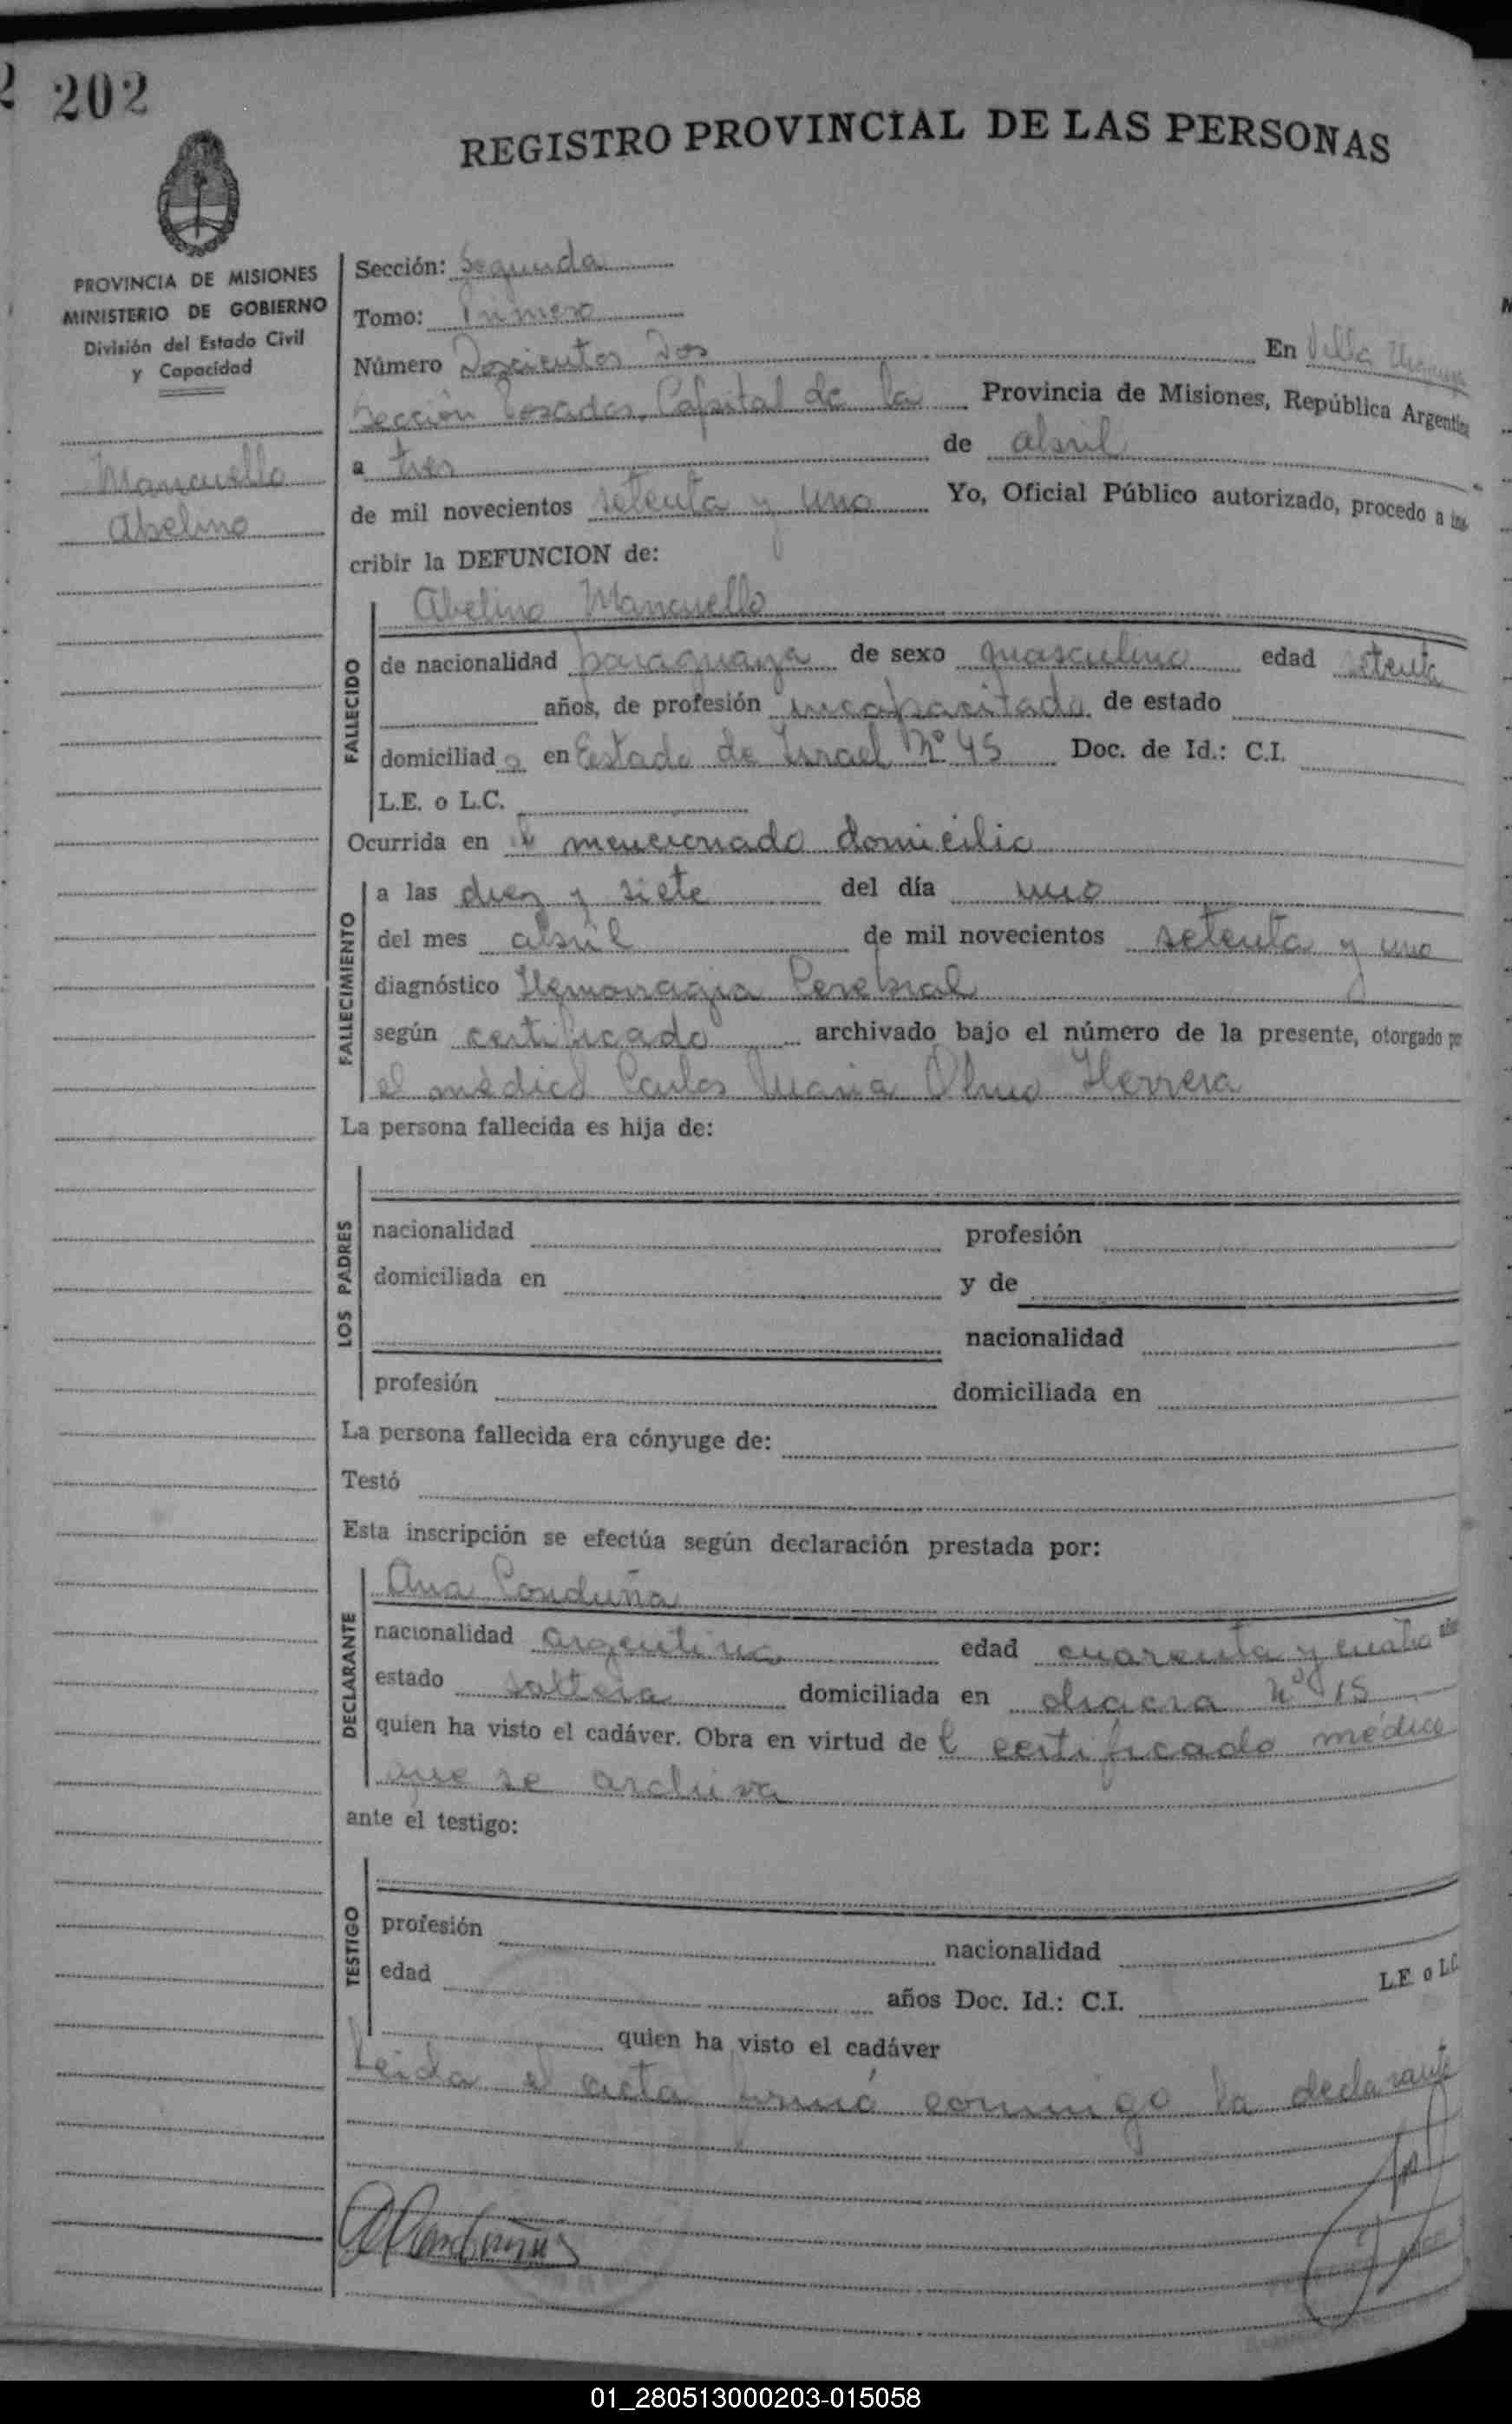 202
REGISTRO PROVINCIAL DE LAS PERSONAS
PROVINCIA DE MISIONES
MINISTERIO DE GOBIERNO
División del Estado Civil
y Capacidad
Mancuello
Abelino
Sección: Segunda
Tomo: Primero
Número Doscientos Dos En Villa Urquiza
Sección Posadas, Capital de la Provincia de Misiones, República Argentina
a tres de abril
de mil novecientos setenta y uno Yo, Oficial Público autorizado, procedo a ins-
cribir la DEFUNCION de:
FALLECIDO
Abelino Mancuello
de nacionalidad paraguaya de sexo masculino edad setenta
años, de profesión incapacitado de estado
domiciliado en Estado de Israel Nº 45 Doc. de Id.: C.I.
L.E. o L.C.
Ocurrida en el mencionado domicilio
FALLECIMIENTO
a las diez y siete del día uno
del mes abril de mil novecientos setenta y uno
diagnóstico Hemorragia Cerebral
según certificado archivado bajo el número de la presente, otorgado por
el médico Carlos Maria Olmo Herrera
La persona fallecida es hija de:
LOS PADRES
nacionalidad profesión
domiciliada en y de
nacionalidad
profesión domiciliada en
La persona fallecida era cónyuge de:
Testó
Esta inscripción se efectúa según declaración prestada por:
DECLARANTE
Ana Conduña
nacionalidad argentina edad cuarenta y cuatro años
estado soltera domiciliada en chacra Nº 15
quien ha visto el cadáver. Obra en virtud de l certificado médico
que se archiva
ante el testigo:
TESTIGO
profesión nacionalidad
edad años Doc. Id.: C.I. L.E. o L.C.
quien ha visto el cadáver
Leida el acta firmó conmigo la declarante
01_280513000203-015058